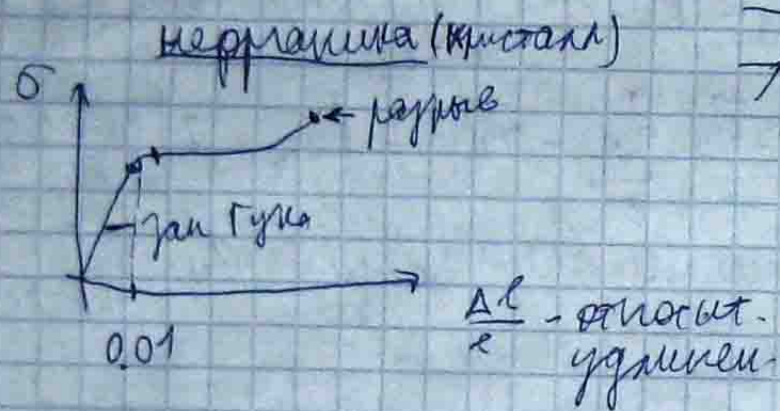 неорганика (кристалл)
σ
разрыв
зак Гука
0.01
Δl/l - относит.
удлинен